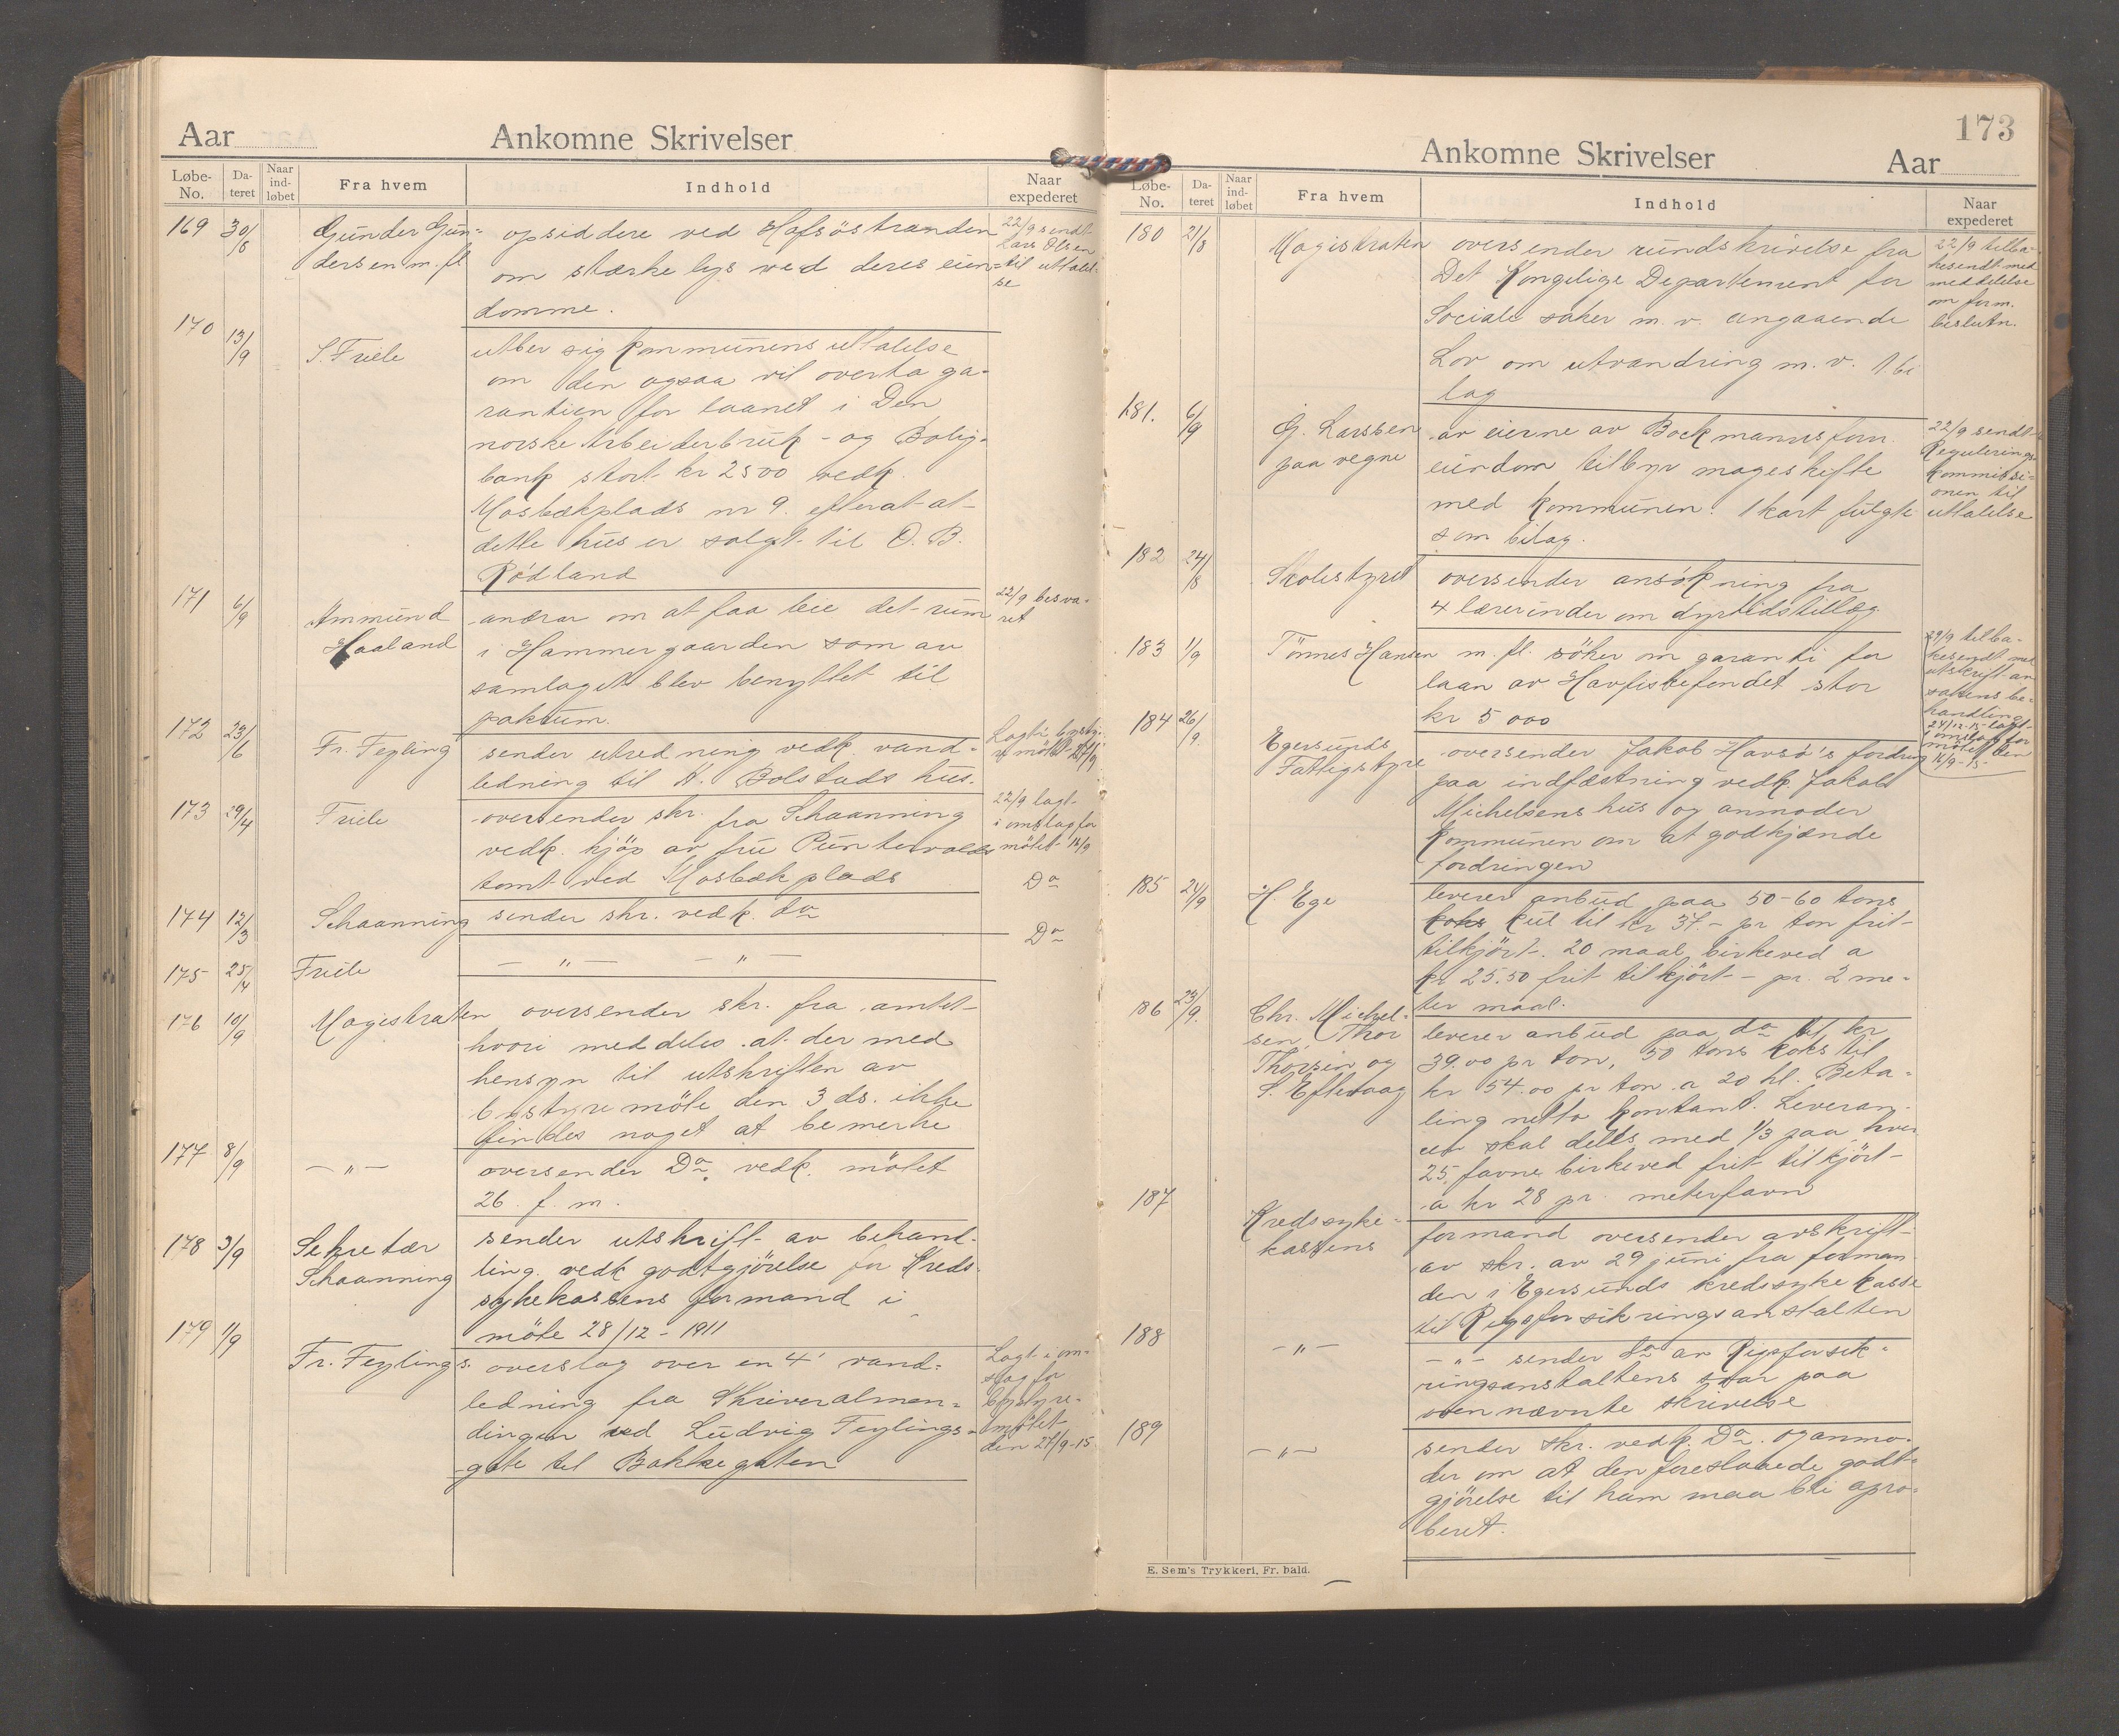 Aar
Ankomne Skrivelser
Løbe-No.
Da-teret
Naar ind-løbet
Fra hvem
Indhold
Naar expederet
169 30/8 Gunder Gun- opsiddere ved Hafsöstranden 22/9 sendt
dersen m. fl om stærke lys ved deres eien- Lars Olsen
domme. til uttalel-
se
170 13/9 S. Friele utber sig kommunens uttalelse
om den ogsaa vil overta ga-
rantien for laanet i Den
norske Arbeiderbruk- og Bolig-
bank stort kr 2500 vedk.
Mosbækplads nr 9. efterat at
dette hus er solgt til O. B.
Rödland
171 6/9 Ammund andrar om at faa leie det rum 22/9 besva-
Haaland i Hammergaarden som av ret
samlaget blev benyttet til
pakrum.
172 23/6 Fr. Feyling sender utredning vedk. vand- Lagt i bysty-
ledning til A. Bolstads hus. remötet 16/9
173 29/4 Friele oversender skr. fra Schaanning 22/9 lagt
vedk. kjöp av fru Puntervolds i omslag for
tomt ved Mosbækplads mötet 16/9
174 12/3 Schaanning sender skr. vedk. do Do
175 25/4 Friele — " — — " — Do
176 10/9 Magistraten oversender skr. fra amtet
hvori meddeles at der med
hensyn til utskriften av
bystyremöte den 3 ds. ikke
findes noget at bemerke
177 8/9 — " — oversender Do vedk. mötet
26. f. m.
178 3/9 Sekretær sender utskrift av behand-
Schaanning ling vedk godtgjörelse for Kreds-
sykekassens formand i
möte 28/12 - 1911
179 1/9 Fr. Feylings. overslag over en 4" vand- Lagt i om-
ledning fra Skriveralmen- slag for
dingen ved Ludvig Feylings- bystyre-
gate til Bakkegaten mötet
den 27/9-15
173
Ankomne Skrivelser
Aar
Løbe-No.
Da-teret
Naar ind-løbet
Fra hvem
Indhold
Naar expederet
180 21/8 Magistraten oversender rundskrivelse fra 22/9 tilba-
Det Kongelige Departement for kesendt med
Sociale saker m. v. angaaende meddelelse
Lov om utvandring m. v. 1 bi om form.
lag beslutn.
181. 6/9 G. Larssen av eierne av Bockmanns forn 22/9 sendt
paa vegne eiendom tilbyr mageskifte Regulerings-
med kommunen. 1 kart fulgte kommissi-
som bilag. onen til
uttalelse
182 24/8 Skolestyret oversender ansökning fra
4 lærerinder om dyrtidstillæg
183 1/9 Tönnes Hansen m. fl. söker om garanti for 29/9 tilba-
laan av Havfiskefondet stor kesendt med
kr 5 000 utskrift av
sakens be-
handling
184 26/9. Egersunds oversender Jakob Havsö's fordring 24/12-15 lagt
Fattigstyre paa indfæstning vedk. Jakob i omslag for
Michelsens hus og anmoder mötet den
kommunen om at godkjænde 16/9-15
fordringen
185 24/9 H. Ege leverer anbud paa 50-60 tons
koks kul til kr 37.- pr ton frit
tilkjört. 20 maal birkeved a
kr 25.50 frit tilkjört - pr. 2 me-
ter maal.
186 23/9. Chr. Michel- leverer anbud paa do til kr
sen, Thor 39.00 pr ton, 50 tons koks til
Thorsen og kr 54.00 pr ton a 20 hl. Beta-
S. Eftevaag ling netto kontant. Leveran-
cen skal deles med 1/3 paa hver
25 favne birkeved frit tilkjört
a kr 28 pr meterfavn
187 Kredssyke- formand oversender avskrift
kassens av skr. av 29 juni fra forman
den i Egersunds kredssykekasse
til Rigsforsikringsanstalten
188 — " — — " — sender do av Rigsforsik-
ringsanstaltens svar paa
ovennævnte skrivelse
189 — " — sender skr. vedk. Do. og anmo-
der om at den foreslaaede godt-
gjörelse til ham maa bli apro-
beret.
E. Sem's Trykkeri, Fr. hald.